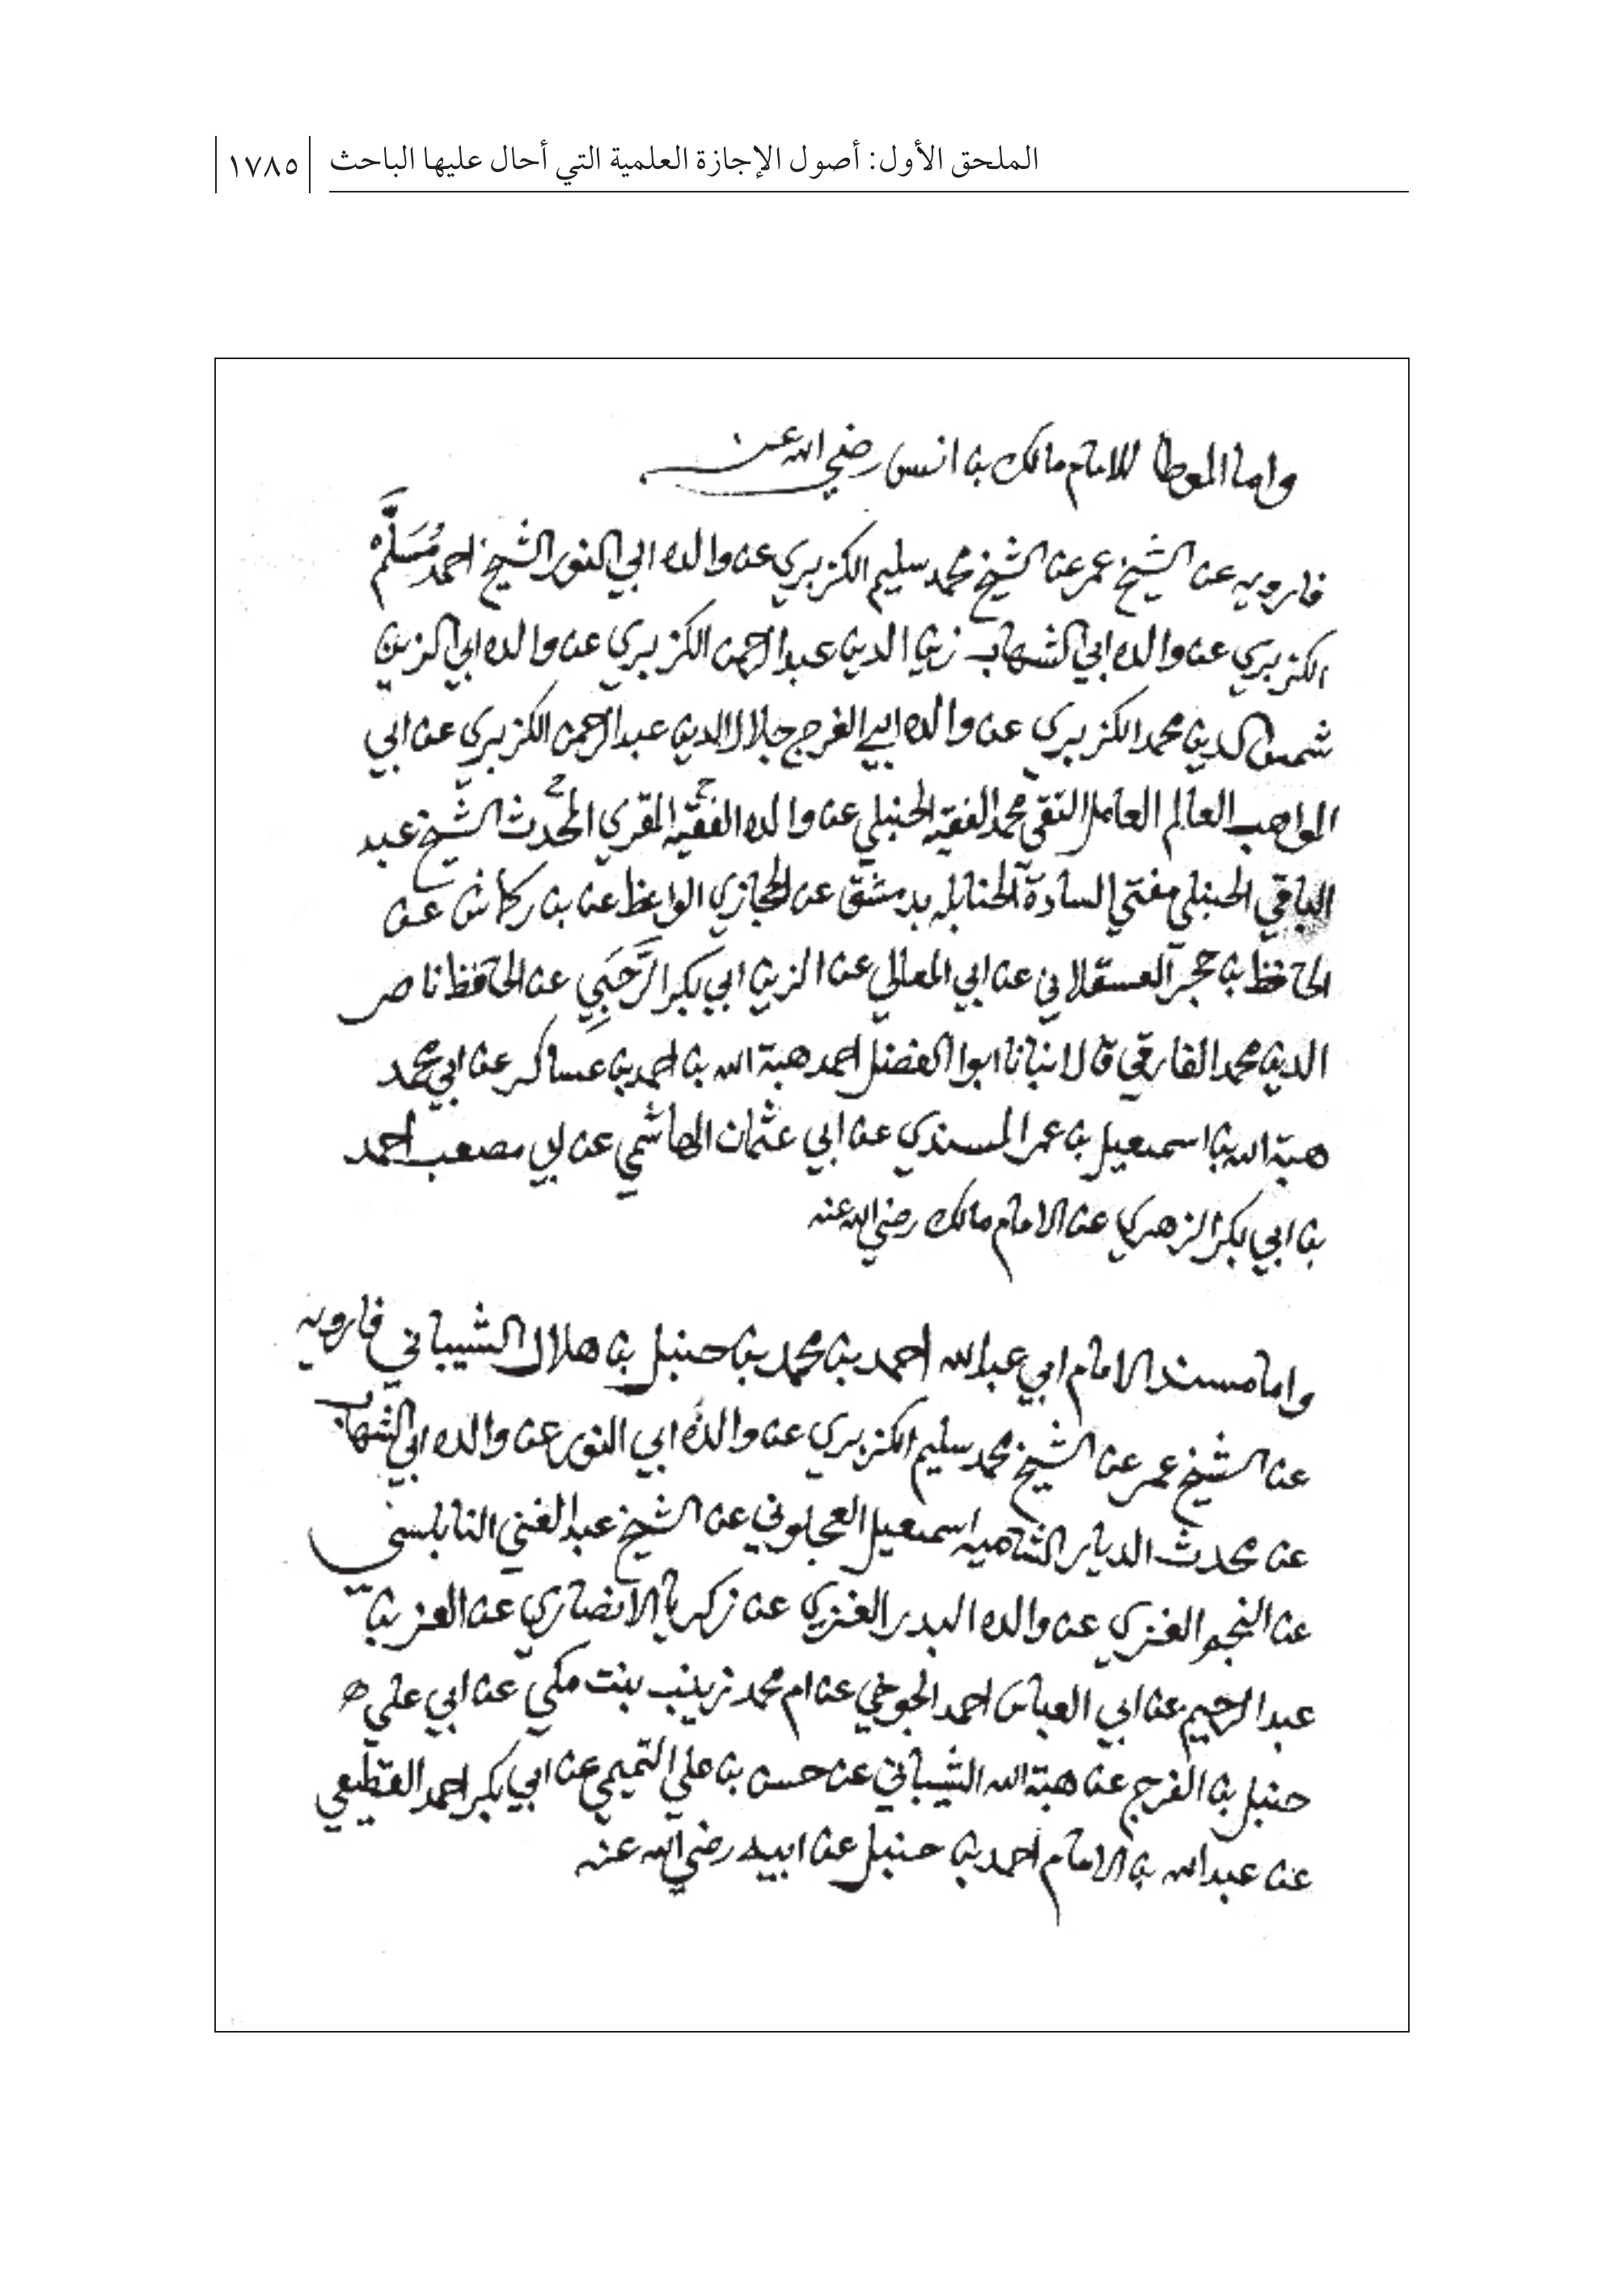 الملحق الأول: أصول الإجازة العلمية التي أحال عليها الباحث ١٧٨٥
واما الموطا للامام مالك بن انس رضي الله عنه
فارويه عن الشيخ عمر عن الشيخ محمد سليم الكزبري عن والده ابي النور الشيخ احمد مُسَلَّم
الكزبري عن والده ابي الشهاب زين الدين عبد الرحمن الكزبري عن والده ابي الزين
شمس الدين محمد الكزبري عن والده ابي الفرج جلال الدين عبد الرحمن الكزبري عن ابي
المواهب العالم العامل التقي محمد الفقيه الحنبلي عن والده الفقيه المقري المحدث الشيخ عبد
الباقي الحنبلي مفتي السادة الحنابله بدمشق عن الحجازي الواعظ عن بن ركماش عن
الحافظ بن حجر العسقلاني عن ابي المعالي عن الزين ابي بكر الرَّحَبِي عن الحافظ ناصر
الدين محمد الفارقي قال انبانا ابوا الفضل احمد هبة الله بن احمد بن عساكر عن ابي محمد
هبة الله بن اسمعيل بن عمر المسندي عن ابي عثمان الهاشمي عن ابي مصعب احمد
بن ابي بكر الزهري عن الامام مالك رضي الله عنه
واما مسند الامام ابي عبد الله احمد بن محمد بن حنبل بن هلال الشيباني فارويه
عن الشيخ عمر عن الشيخ محمد سليم الكزبري عن والده ابي النور عن والده ابي الشهاب
عن محدث الديار الشاميه اسمعيل العجلوني عن الشيخ عبد الغني النابلسي
عن النجم الغزي عن والده البدر الغزي عن زكريا الانصاري عن العز بن
عبد الرحيم عن ابي العباس احمد الجوخي عن ام محمد زينب بنت مكي عن ابي علي
حنبل بن الفرج عن هبة الله الشيباني عن حسن بن علي التميمي عن ابي بكر احمد القطيعي
عن عبد الله بن الامام احمد بن حنبل عن ابيه رضي الله عنه